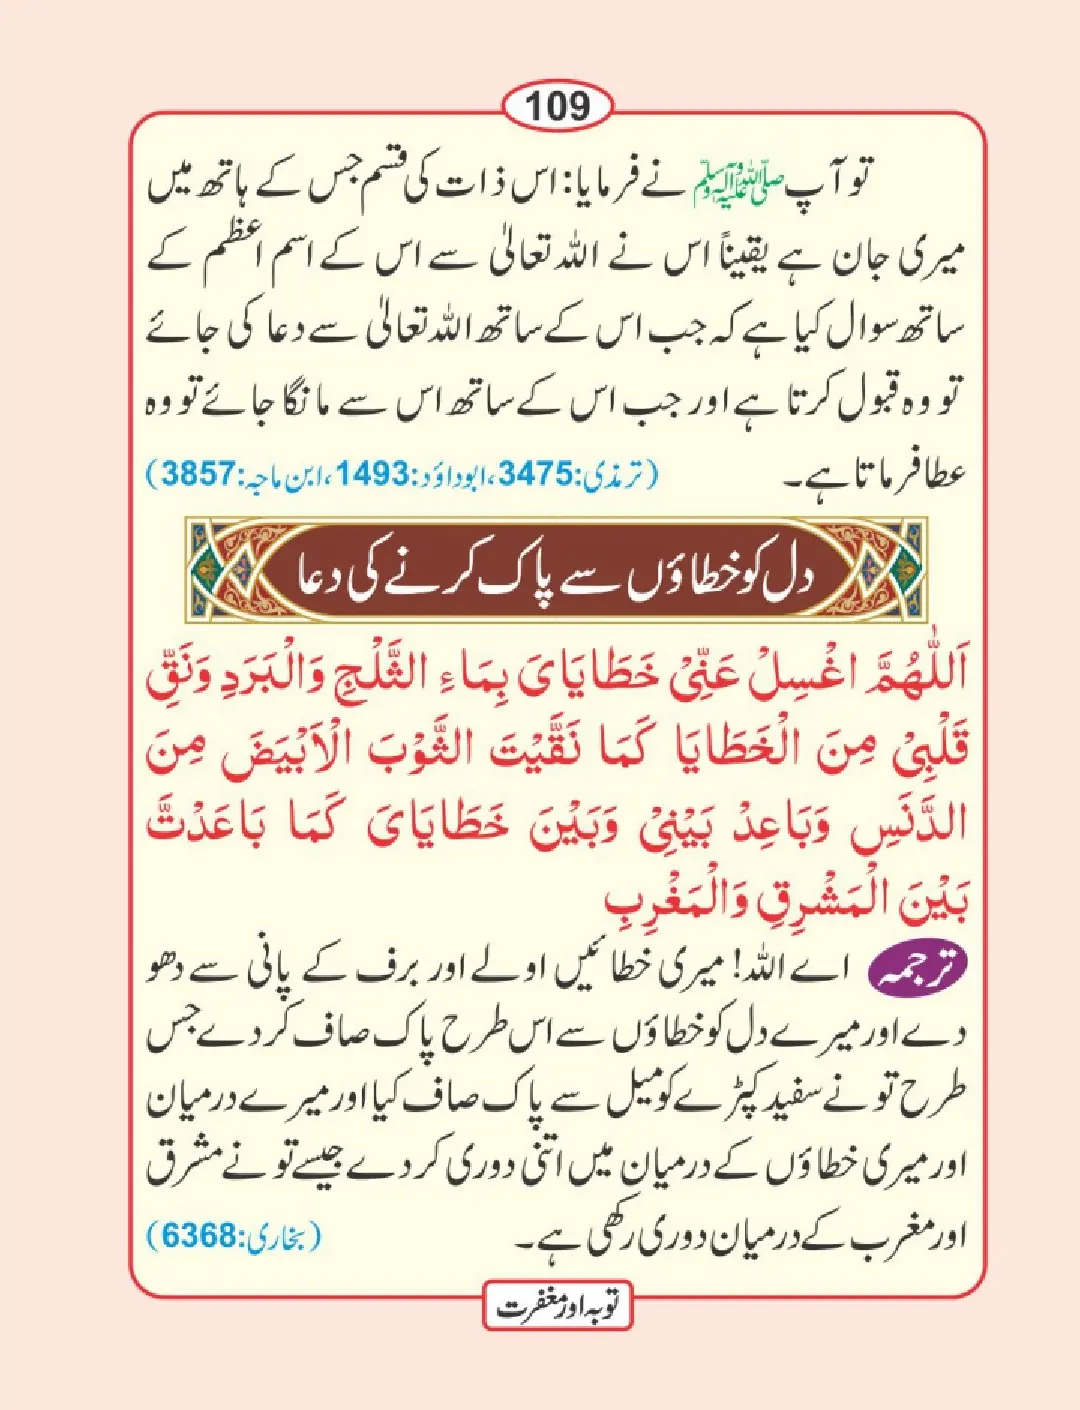 109
تو آپ صلی اللہ علیہ وآلہ وسلم نے فرمایا: اس ذات کی قسم جس کے ہاتھ میں
میری جان ہے یقیناً اس نے اللہ تعالیٰ سے اس کے اسم اعظم کے
ساتھ سوال کیا ہے کہ جب اس کے ساتھ اللہ تعالیٰ سے دعا کی جائے
تو وہ قبول کرتا ہے اور جب اس کے ساتھ اس سے مانگا جائے تو وہ
عطا فرماتا ہے۔ (ترمذی:3475، ابوداؤد:1493، ابن ماجہ:3857)
دل کو خطاؤں سے پاک کرنے کی دعا
اَللّٰهُمَّ اغْسِلْ عَنِّیْ خَطَایَایَ بِمَاءِ الثَّلْجِ وَالْبَرَدِ وَنَقِّ
قَلْبِیْ مِنَ الْخَطَایَا کَمَا نَقَّیْتَ الثَّوْبَ الْاَبْیَضَ مِنَ
الدَّنَسِ وَبَاعِدْ بَیْنِیْ وَبَیْنَ خَطَایَایَ کَمَا بَاعَدْتَّ
بَیْنَ الْمَشْرِقِ وَالْمَغْرِبِ
ترجمہ اے اللہ! میری خطائیں اولے اور برف کے پانی سے دھو
دے اور میرے دل کو خطاؤں سے اس طرح پاک صاف کر دے جس
طرح تو نے سفید کپڑے کو میل سے پاک صاف کیا اور میرے درمیان
اور میری خطاؤں کے درمیان میں اتنی دوری کر دے جیسے تو نے مشرق
اور مغرب کے درمیان دوری رکھی ہے۔ (بخاری:6368)
توبہ اور مغفرت